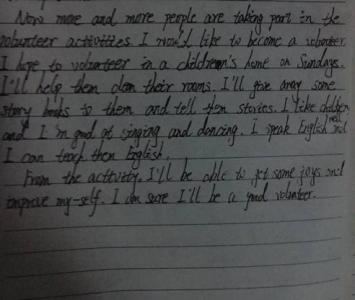 Now more and more people are taking part in the
volunteer activities. I would like to become a volunteer.
I hope to volunteer in a children's home on Sundays.
I'll help them clean their rooms. I'll give away some
story books to them and tell them stories. I like children
and I'm good at singing and dancing. I speak English well and
I can teach them English.
From the activity, I'll be able to get some joys and
improve my-self. I am sure I'll be a good volunteer.